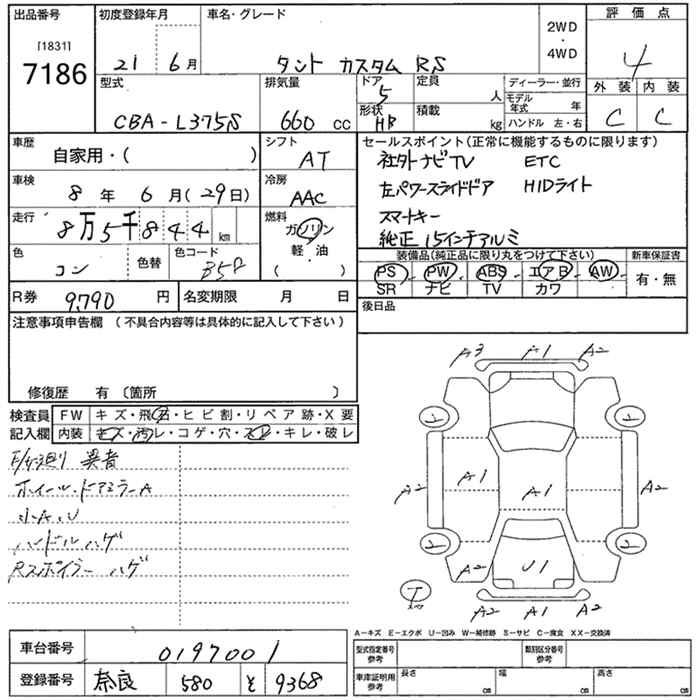 出品番号
[1831]
7186
初度登録年月
21 6月
車名・グレード
タント カスタム RS
2WD
・
4WD
評価点
4
型式
CBA-L375S
排気量
660 cc
ドア
5
形状
HB
定員
人
積載
kg
ディーラー・並行
モデル年式 年
ハンドル 左・右
外装 内装
C C
車歴
自家用・( )
シフト
AT
車検
8年 6月(29日)
冷房
AAC
走行
8万5千844km
燃料
ガソリン
軽・油
( )
色
コン
色替
色コード
R券
9790円
名変期限 月 日
セールスポイント(正常に機能するものに限ります)
社外ナビTV ETC
左パワースライドドア HIDライト
スマートキー
純正15インチアルミ
装備品(純正品に限り丸をつけて下さい)
PS PW ABS エアB AW
SR ナビ TV カワ
新車保証書
有・無
後日品
注意事項申告欄(不具合内容等は具体的に記入して下さい)
修復歴 有〔箇所 〕
検査員
記入欄
FW キズ・飛石・ヒビ割・リペア跡・X要
内装 キズ・汚レ・コゲ・穴・スレ・キレ・破レ
異音
ホイール・ドアミラーA
小A.U
ハンドルハゲ
Rスポイラーハゲ
A3 A1 A2
2 2
A2 A1 A1 A2
2 2
A2 U1
T
A2 A1 A2
A-キズ E-エクボ U-凹み W-補修跡 S-サビ C-腐食 XX-交換済
車台番号
0197001
登録番号
奈良 580 そ 9368
型式指定番号
参考
類別区分番号
参考
車庫証明用
参考
長さ cm
幅 cm
高さ cm